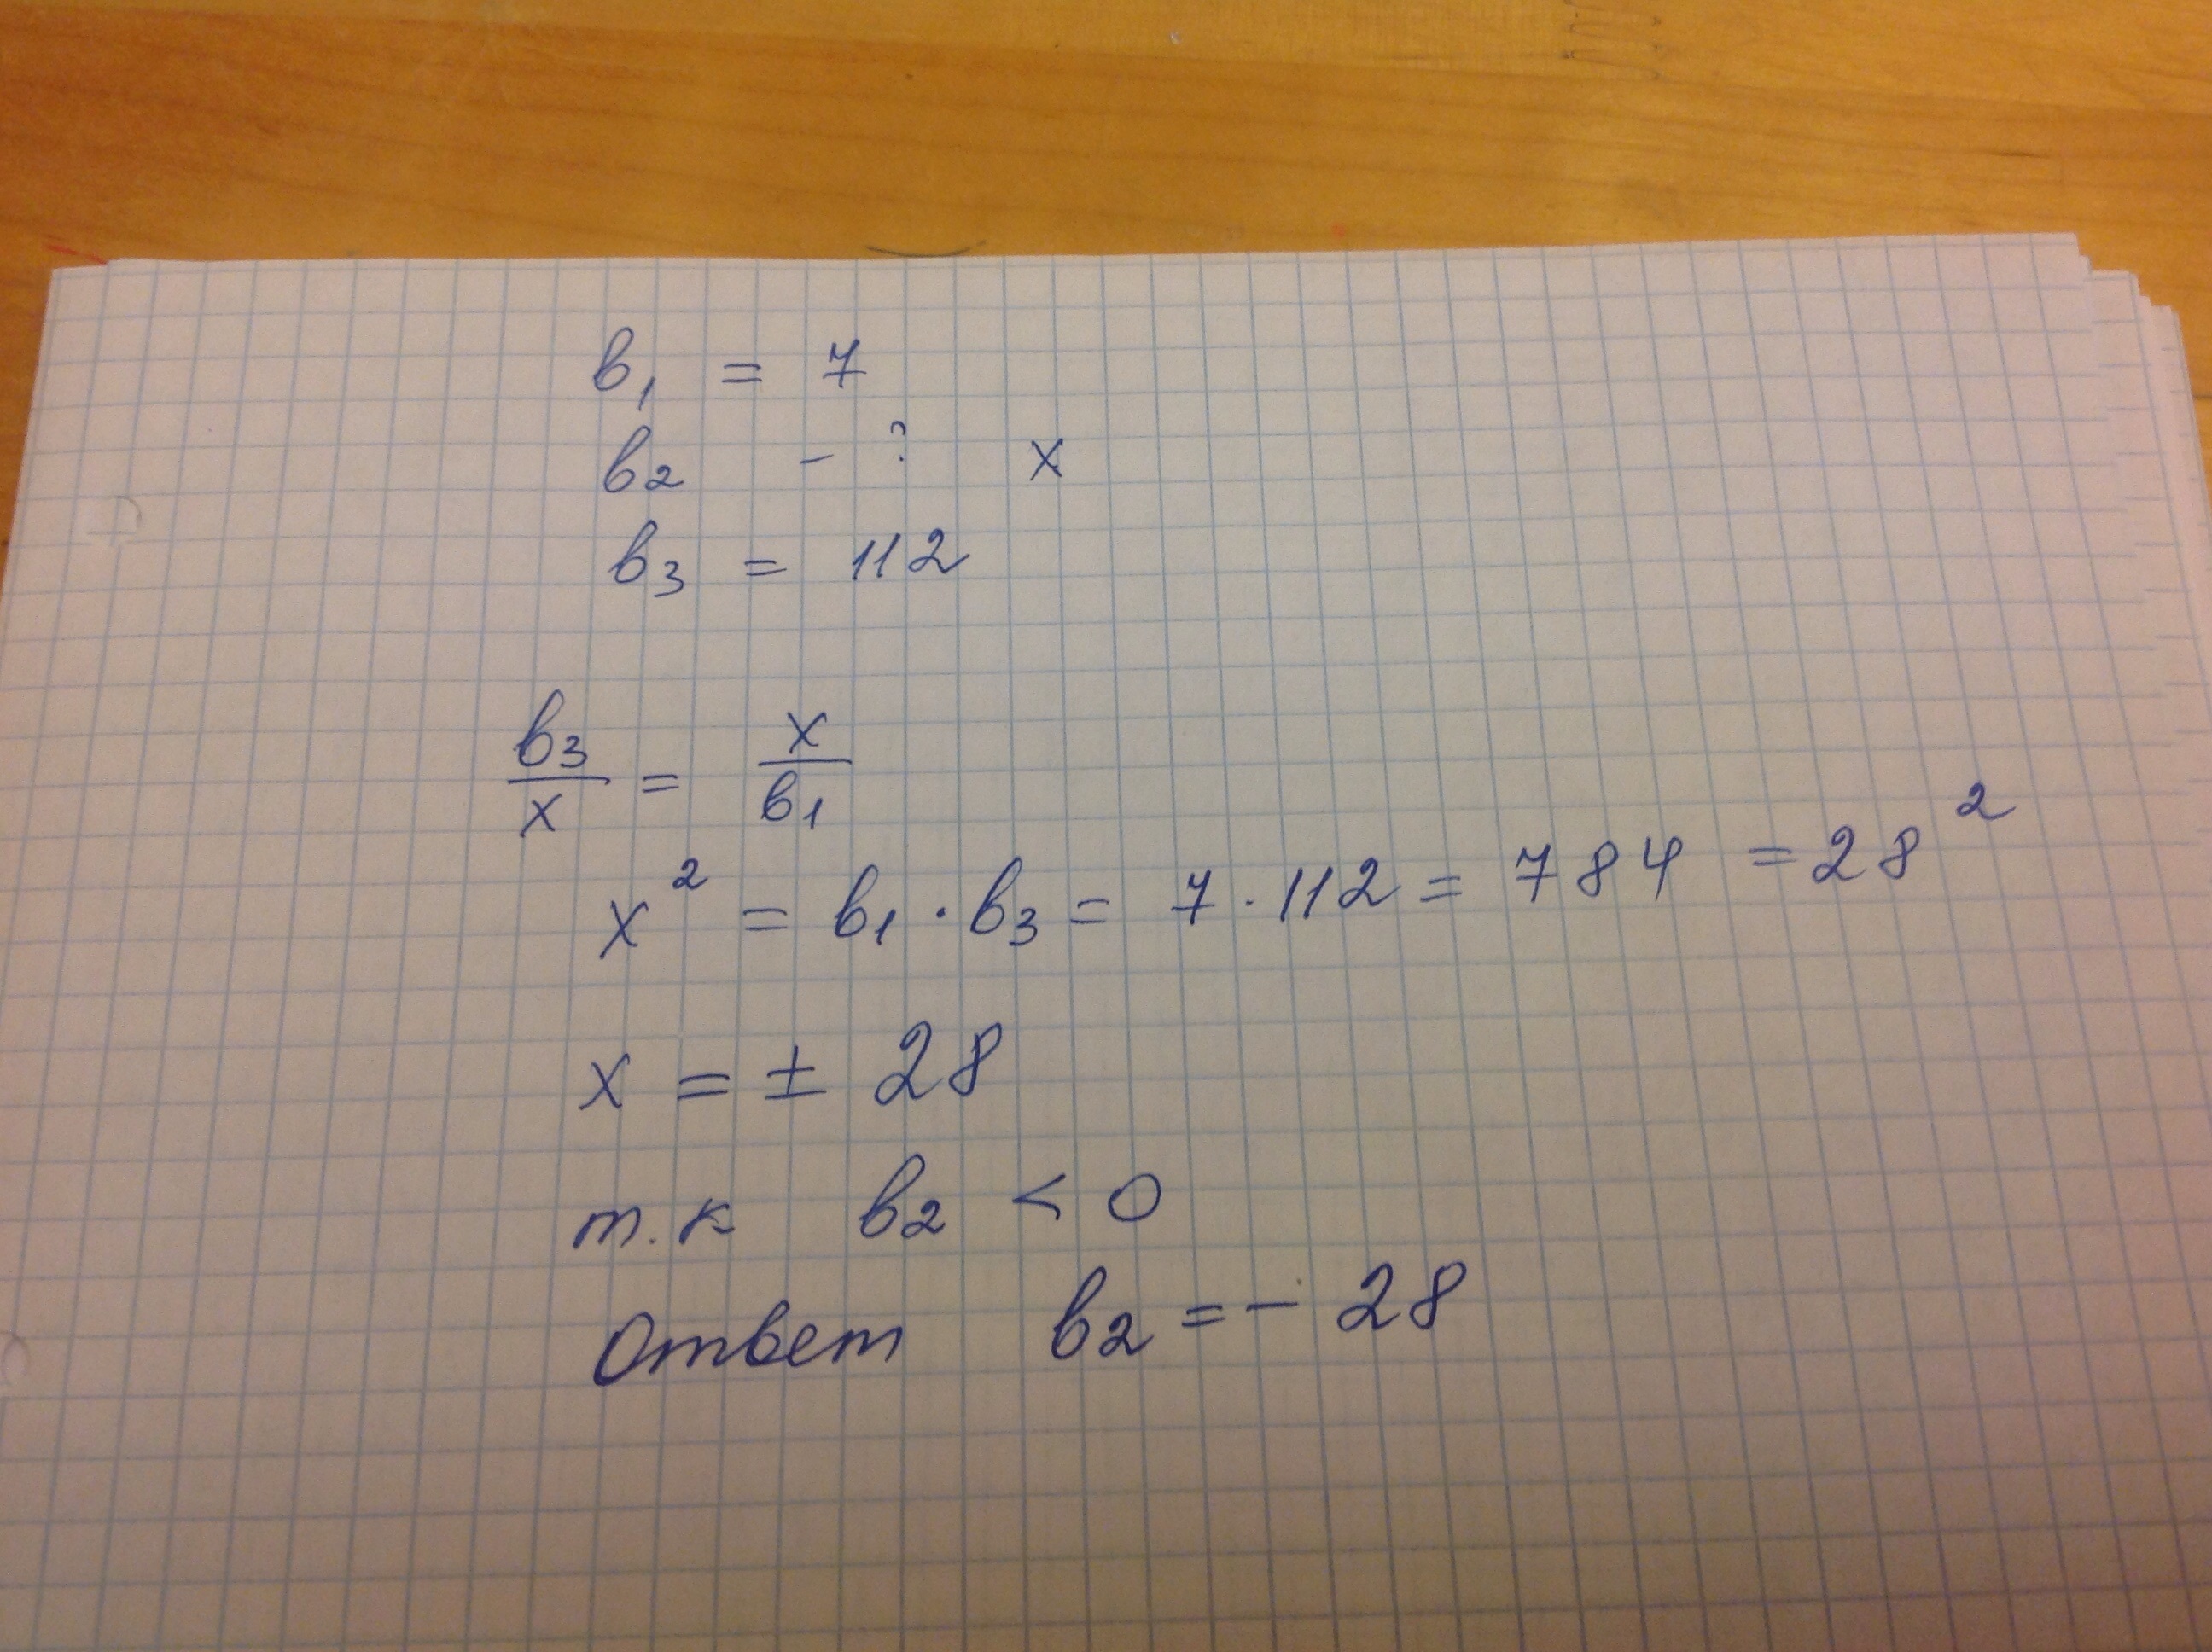 b₁ = 7
b₂ - ? x
b₃ = 112
b₃/x = x/b₁
x² = b₁ · b₃ = 7 · 112 = 784 = 28²
x = ± 28
т.к b₂ < 0
Ответ b₂ = - 28